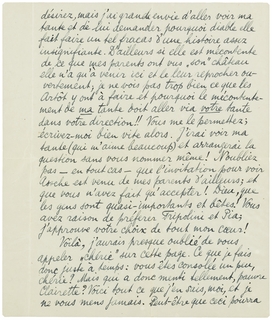 désirer, mais j'ai grande envie d'aller voir ma
tante et de lui demander pourquoi diable elle
fait faire un tel fracas d'une histoire assez
insignifiante. D'ailleurs si elle est mécontente
de ce que mes parents ont vus, son château
elle n'a qu'à venir ici et le leur reprocher ou-
vertement, je ne vois pas trop bien ce que les
Artôt y ont à faire et pourquoi le mécontente-
ment de ma tante doit aller via votre tante
dans votre direction!! Vous me le permettez;
écrivez-moi bien vite alors. J'irai voir ma
tante (qui m'aime beaucoup) et arrangerai la
question sans vous nommer même! N'oubliez
pas — en tout cas — que l'invitation pour voir
est venue de mes parents d'ailleurs et
que vous n'avez fait qu'accepter! Dieu, que
les gens sont quasi-importants et bêtes! Vous
avez raison de préférer et
j'approuve votre choix de tout mon cœur!
Voilà, j'aurais presque oublié de vous
appeler "chérie" sur cette page. Ce que je fais
donc juste à temps: vous êtes consolée un peu,
chérie? Mais qui a donc menti tellement, pauvre
Clairette? Voici tout ce que j'en sais, moi, et je
ne vous mens jamais. Peut-être que ceci pourra